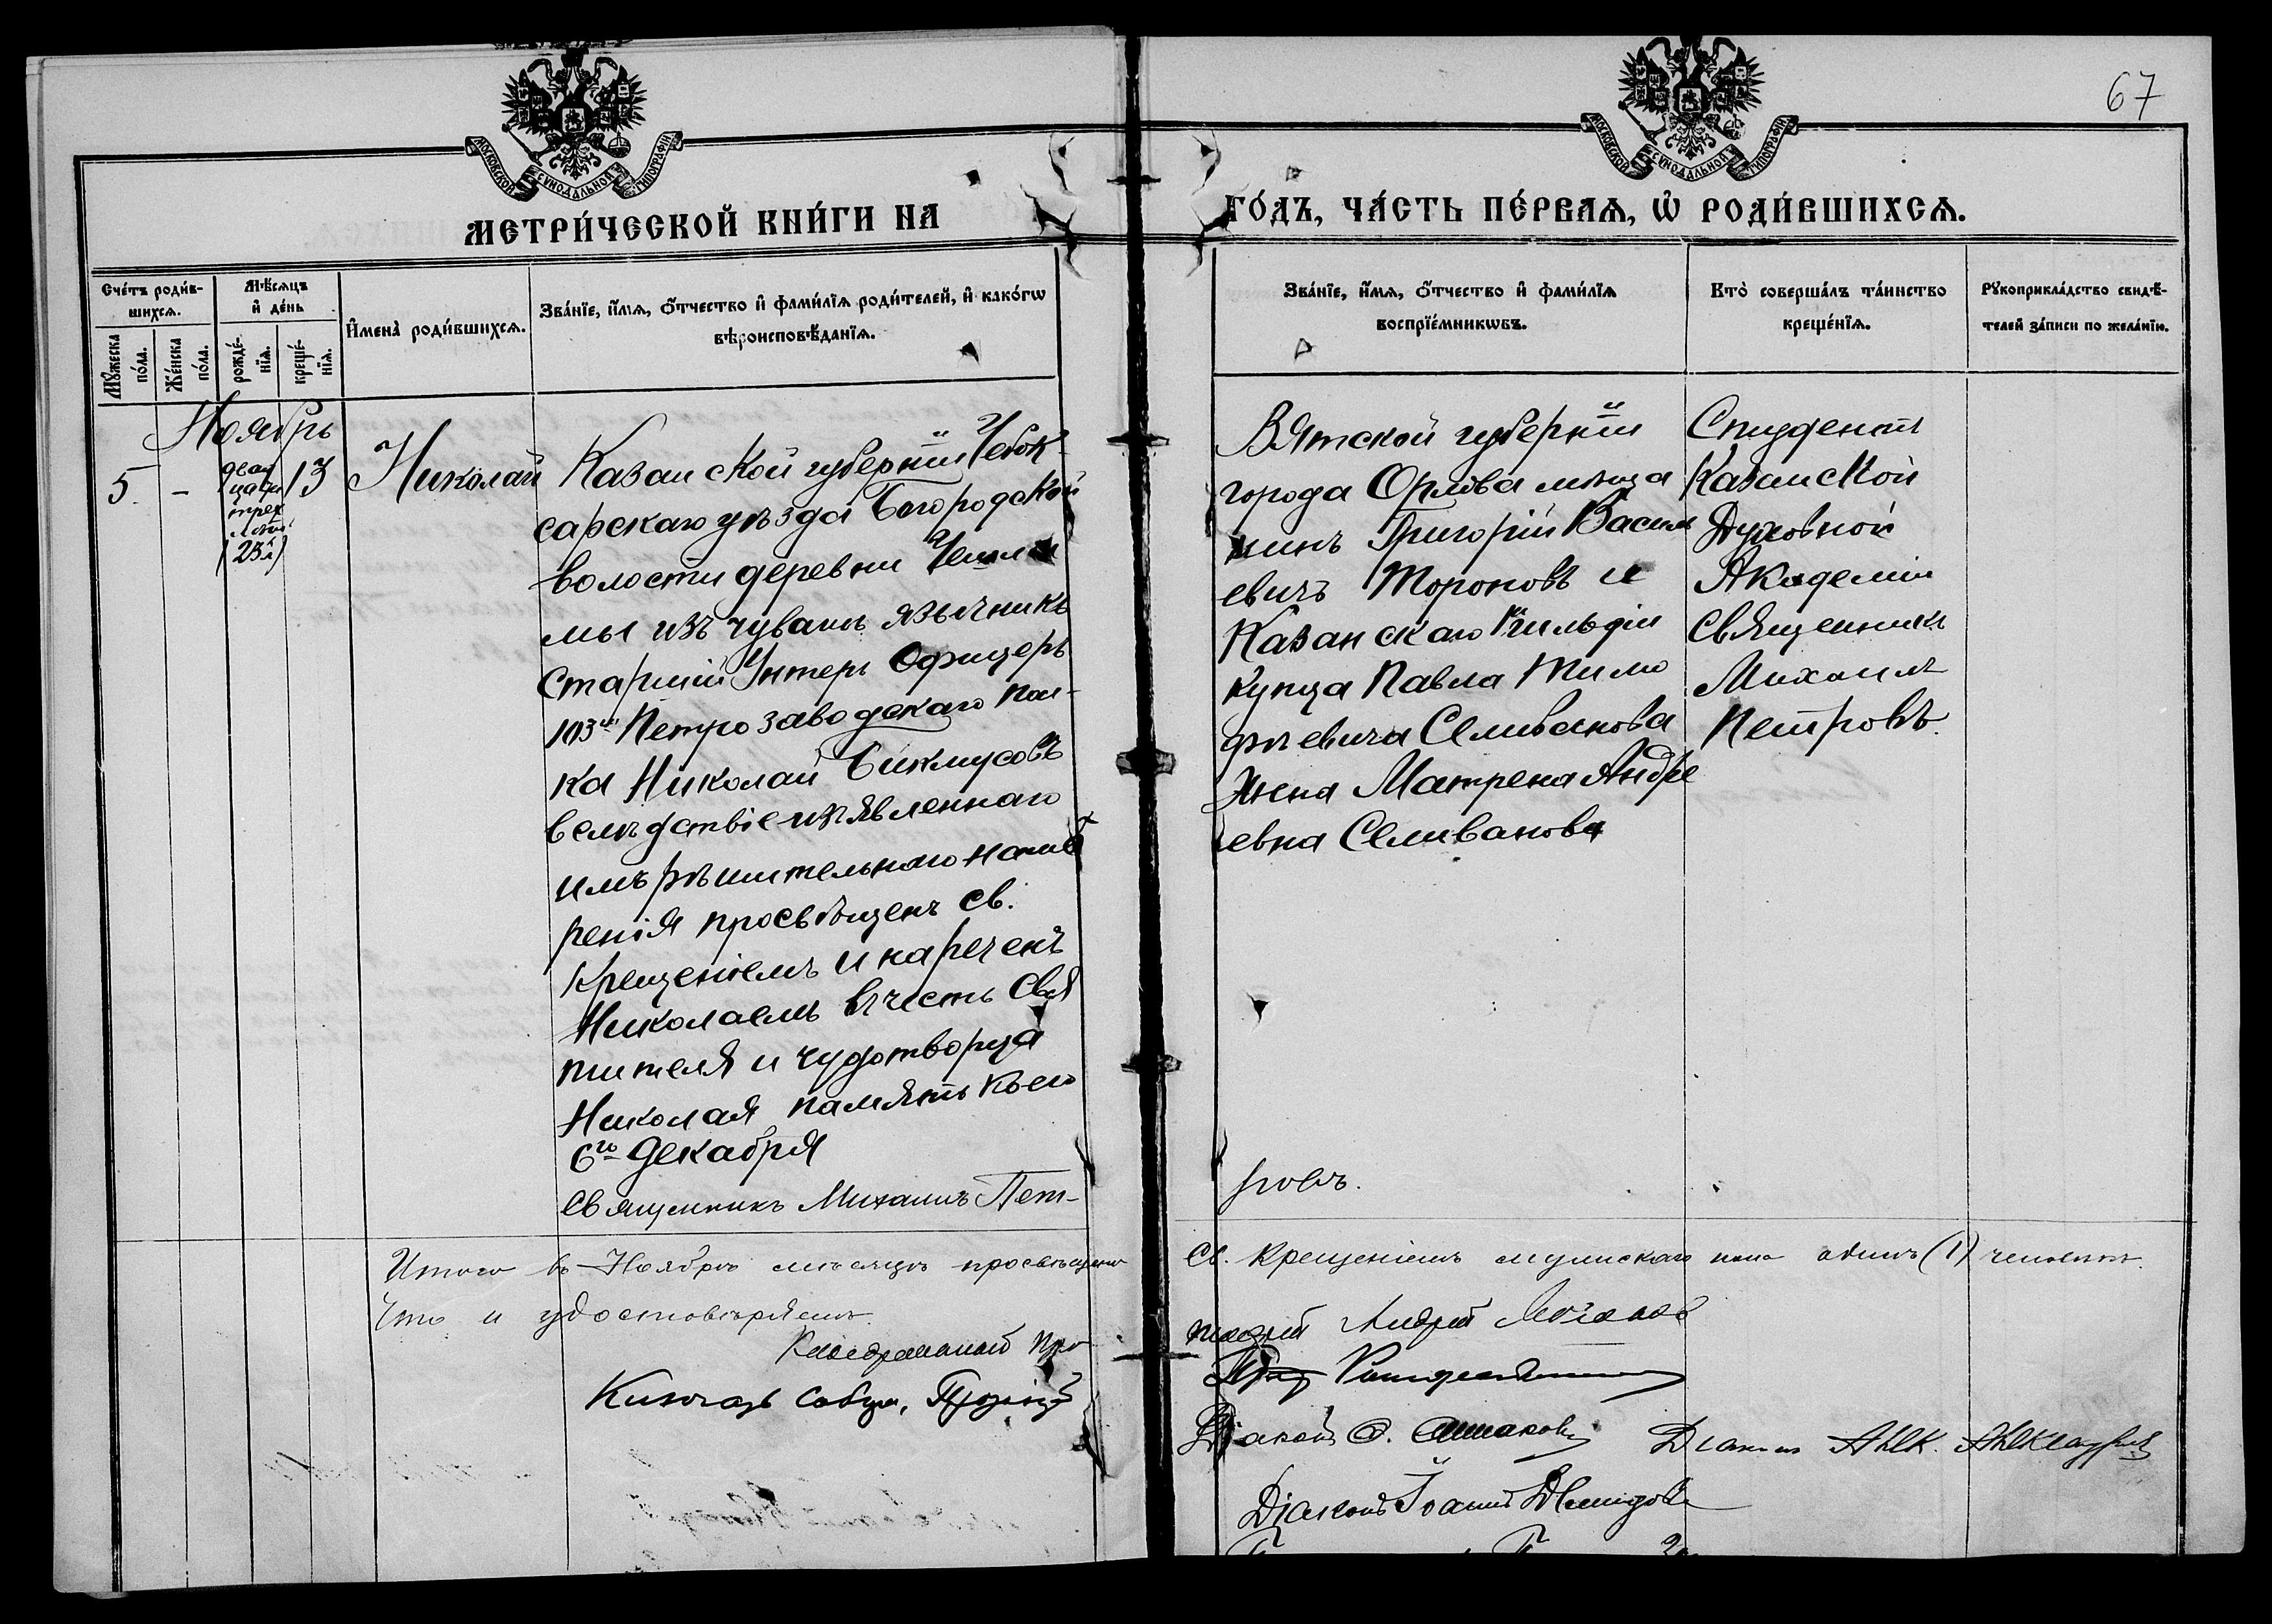 67
МОСКОВСКОЙ СѴНОДАЛЬНОЙ ТИПОГРАФІИ
МОСКОВСКОЙ СѴНОДАЛЬНОЙ ТИПОГРАФІИ
МЕТРИ́ЧЕСКОЙ КНИ́ГИ НА
ГО́ДЪ, ЧА́СТЬ ПЕ́РВАѦ, Ѡ҆ РОДИ́ВШИХСѦ.
Сче́тъ роди́в-
шихсѧ.
Мꙋ́жеска
по́ла.
Же́нска
по́ла.
Мѣ́сѧцъ
и҆ де́нь
рожде́-
нїѧ.
креще́-
нїѧ.
И҆мена̀ роди́вшихсѧ.
Зва́нїе, и҆́мѧ, ѻ҆́тчество и҆ фами́лїѧ роди́телей, и҆ како́гѡ
вѣроисповѣ́данїѧ.
Зва́нїе, и҆́мѧ, ѻ҆́тчество и҆ фами́лїѧ
воспрїе́мникѡвъ.
Кто̀ соверша́лъ та́инство
креще́нїѧ.
Рꙋкоприкла́дство свидѣ́-
телей за́писи по жела́нїю.
Ноябрь
5.
-
двад
цати
трех
лѣтъ
(23)
13
Николай
Казанской губерніи Чебок-
сарскаго уѣзда Богородской
волости деревни
мы изъ чувашъ язычникъ
Старшій Унтеръ Офицеръ
103го Петрозаводскаго пол-
ка Николай Бикмусовъ
вслѣдствіе изъявленнаго
имъ рѣшительнаго намѣ
ренія просвѣщенъ св.
Крещеніемъ и нареченъ
Николаемъ въ честь Свя
тителя и чудотворца
Николая память коего
6го Декабря
Священникъ Михаилъ Пет-
ровъ.
Вятской губерніи
города Орлова мѣща
нинъ Григорій Василь
евичъ Тороповъ и
Казанскаго гильдіи
купца Павла Тимо
фѣевича Селиванова
Жена Матрена Андре
евна Селиванова
Студентъ
Казанской
Духовной
Академіи
Священникъ
Михаилъ
Петровъ.
Итого въ Ноябрѣ мѣсяцѣ просвѣщено св. Крещеніемъ мужскаго пола одинъ (1) человѣкъ.
Что и удостовѣряемъ.
Каѳедральный Про
Андрей
Ключарь собора,
Діаконъ
Діаконъ Іоаннъ Демидовъ